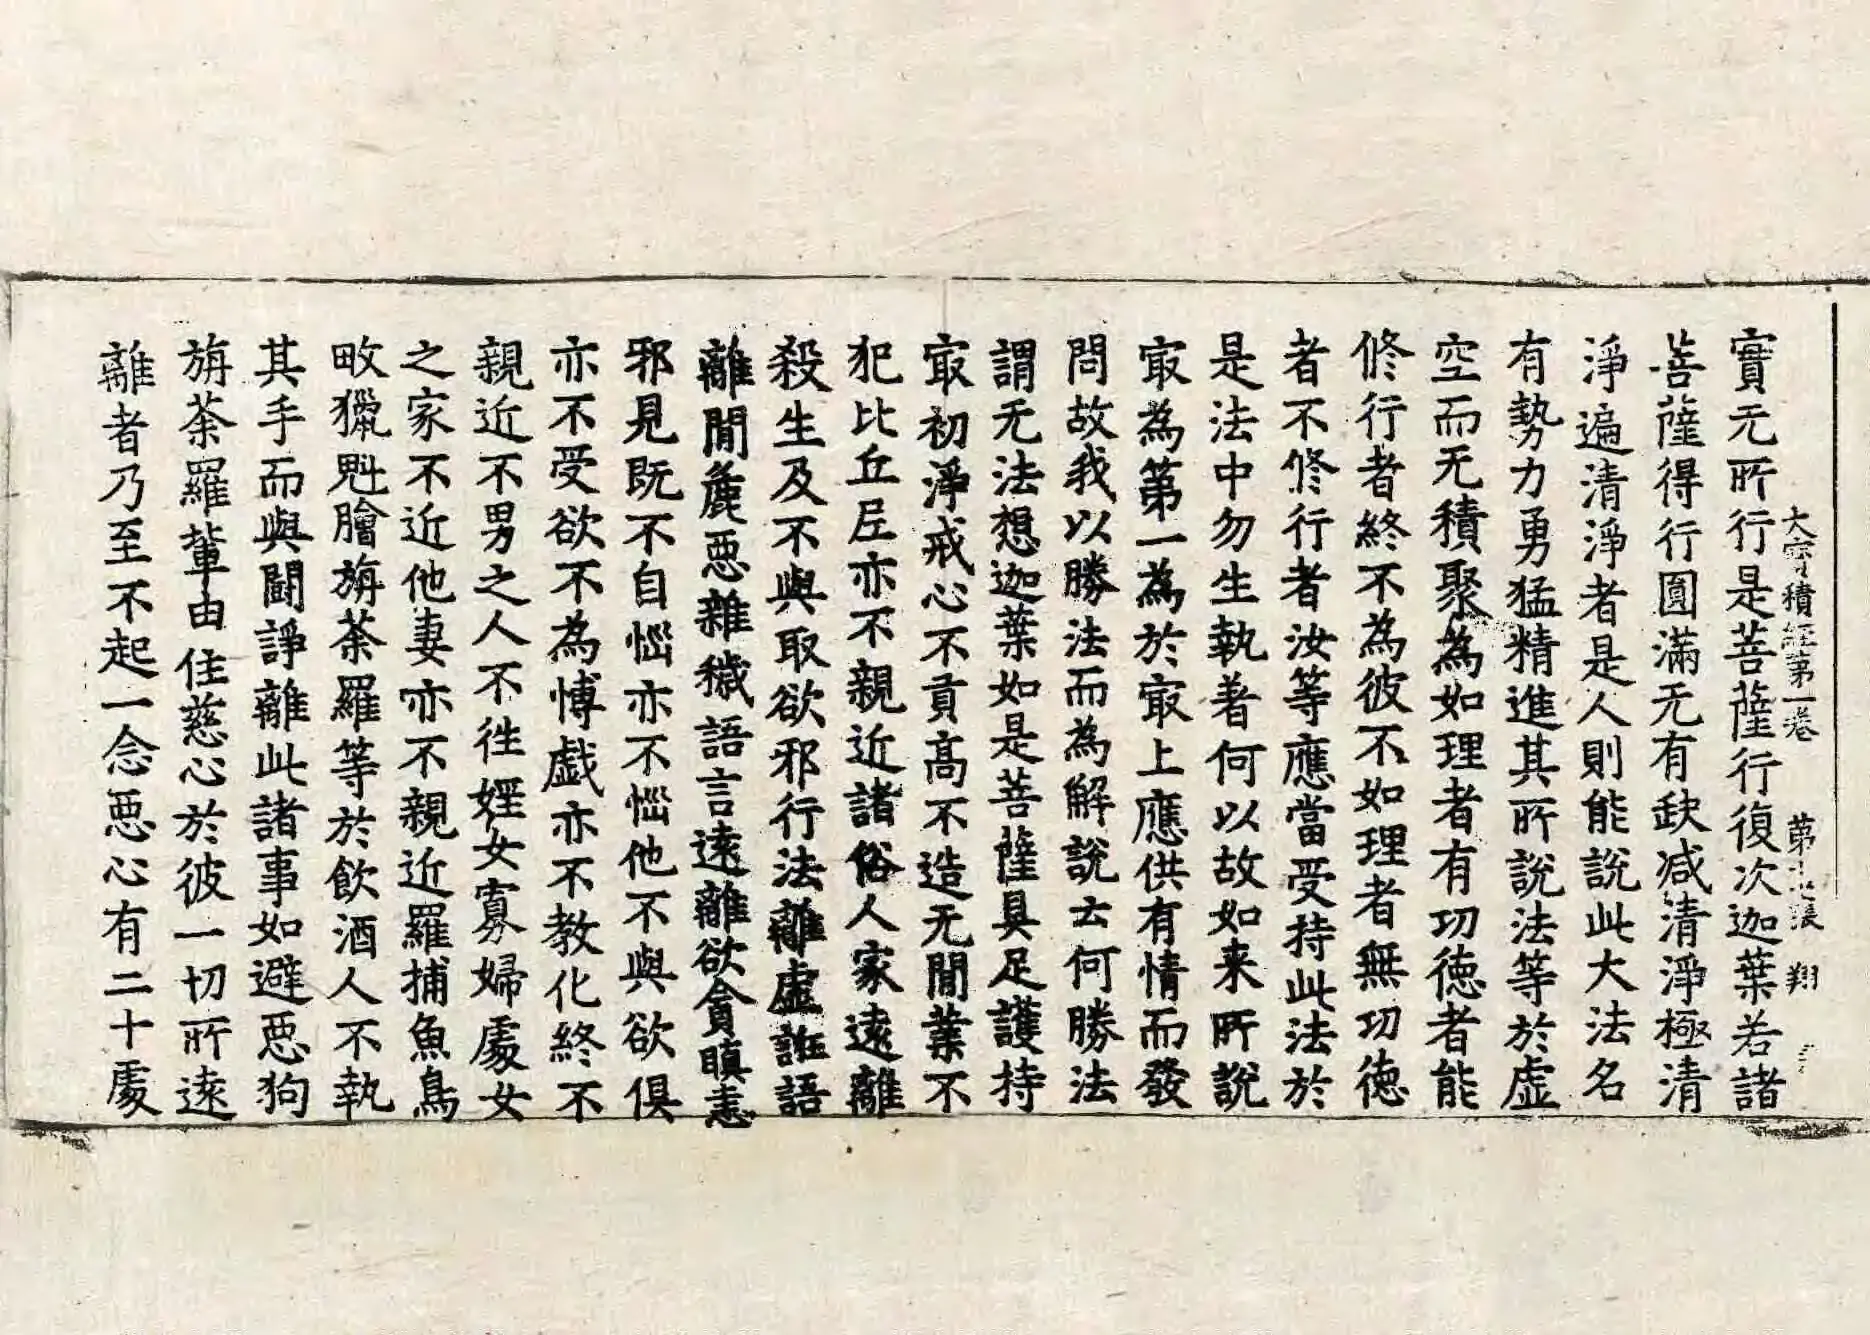 大寶積經第一卷 第 張 翔
實无所行是菩薩行復次迦葉若諸
菩薩得行圓滿无有缺减清淨極清
淨遍清淨者是人則能說此大法名
有勢力勇猛精進其所說法等於虛
空而无積聚為如理者有功德者能
修行者終不為彼不如理者無功德
者不修行者汝等應當受持此法於
是法中勿生執著何以故如来所說
㝡為第一為於㝡上應供有情而發
問故我以勝法而為解說云何勝法
謂无法想迦葉如是菩薩具足護持
㝡初淨戒心不貢高不造无閒業不
犯比丘尼亦不親近諸俗人家遠離
殺生及不與取欲邪行法離虛誑語
離閒麁惡雜穢語言遠離欲貪瞋恚
邪見既不自惱亦不惱他不與欲俱
亦不受欲不為博戲亦不教化終不
親近不男之人不往婬女寡婦處女
之家不近他妻亦不親近羅捕魚鳥
畋獵魁膾旃荼羅等於飲酒人不執
其手而與鬪諍離此諸事如避惡狗
旃荼羅輩由住慈心於彼一切所遠
離者乃至不起一念惡心有二十處